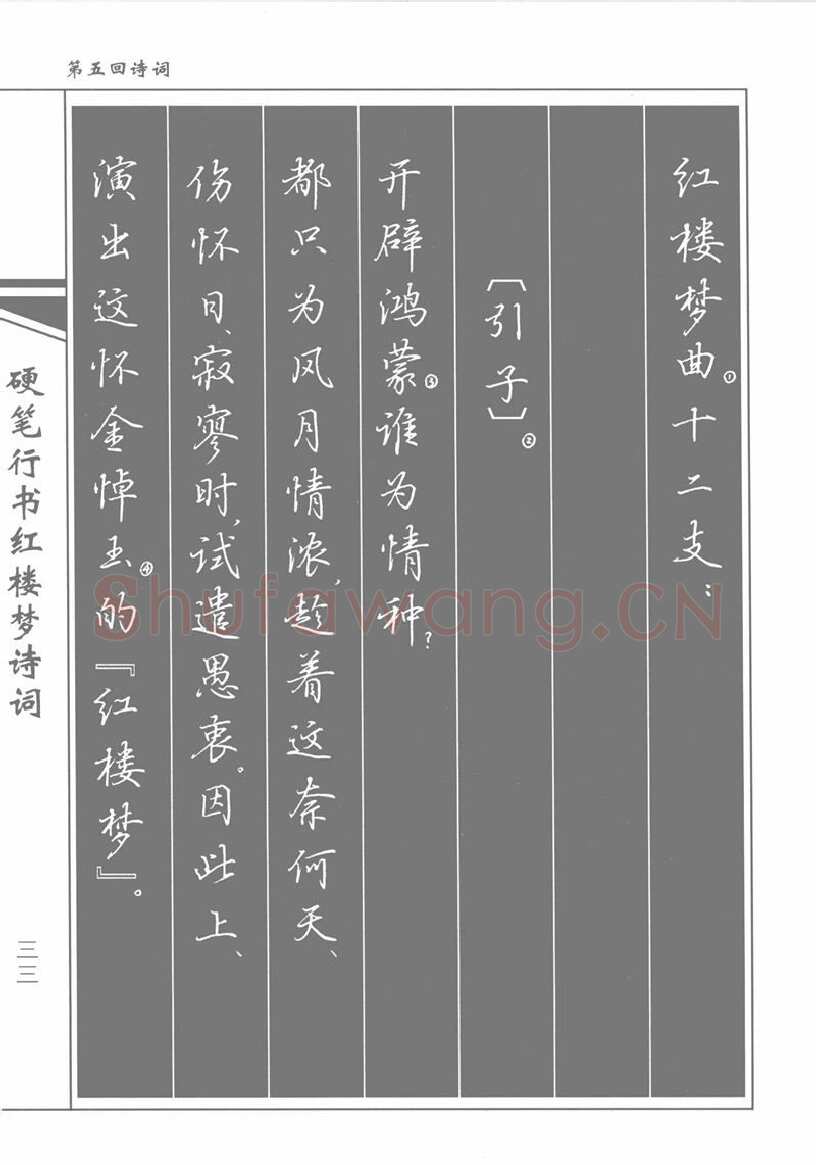 第五回诗词
红楼梦曲①十二支：
〔引子〕②
开辟鸿蒙③谁为情种？
都只为风月情浓，趁着这奈何天、
伤怀日、寂寥时，试遣愚衷。因此上、
演出这怀金悼玉④的『红楼梦』。
硬笔行书红楼梦诗词
三三
Shufawang.CN